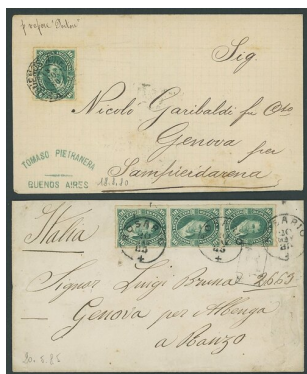 p vapore
Sig.
Nicolò Garibaldi fu Gto
Genova per
Sampierdarena
TOMASO PIETRANERA
BUENOS AIRES
18.8.80
Italia
Signor Luigi Bruna 2663
Genova per Albenga
a Ranzo
20.5.85